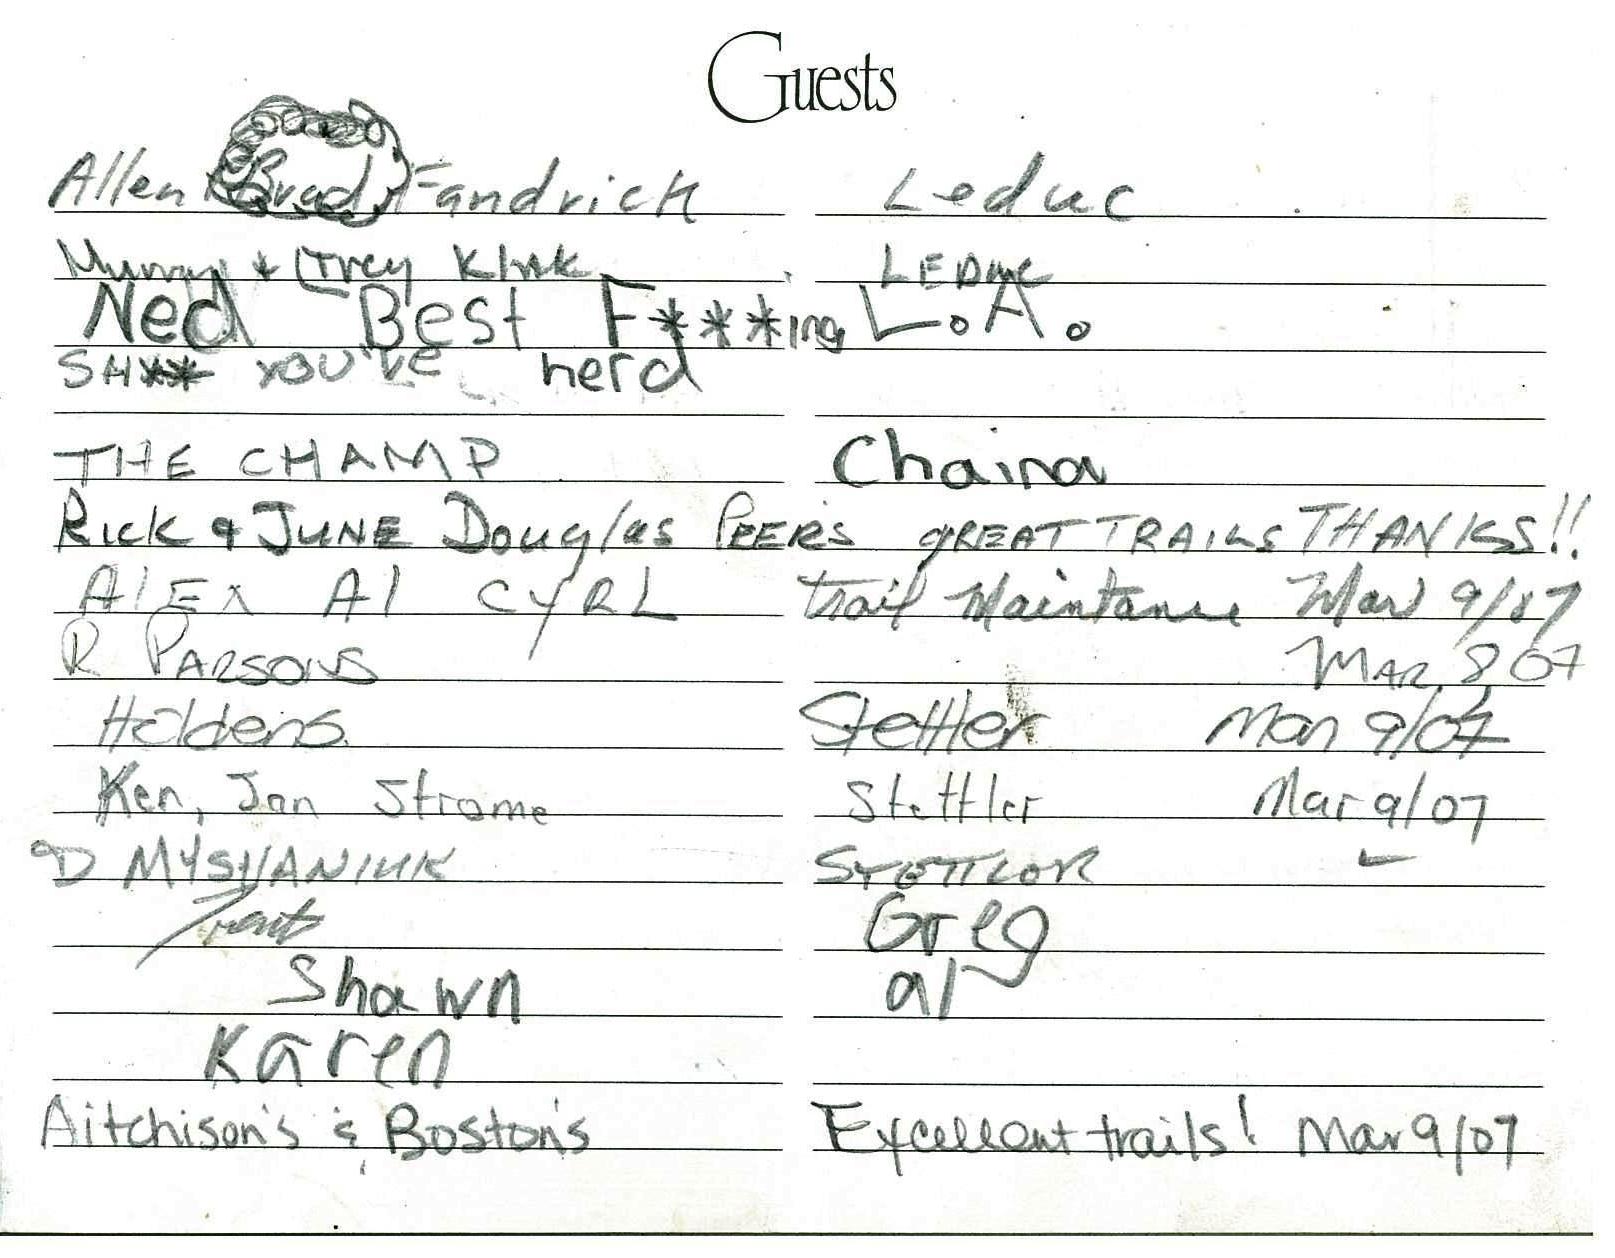 Guests
Allen & Brad Fandrick Leduc
Murray & Trey Klink LEDUC
Ned Best F***ing L.A.
SH** YOU've herd
THE CHAMP Chaina
RICK & JUNE Douglas PEERS GREAT TRAILS THANKS!!
ALEX Al CYRL trail Maintanance Mar 9/07
R PARSONS MAR 8 07
Holdens Stettler Mar 9/07
Ken, Jan Strome Stettler Mar 9/07
D MYSHANIUK STETTLOR
Greg
Shawn al
Karen
Aitchison's & Boston's Excellent trails! Mar 9/07